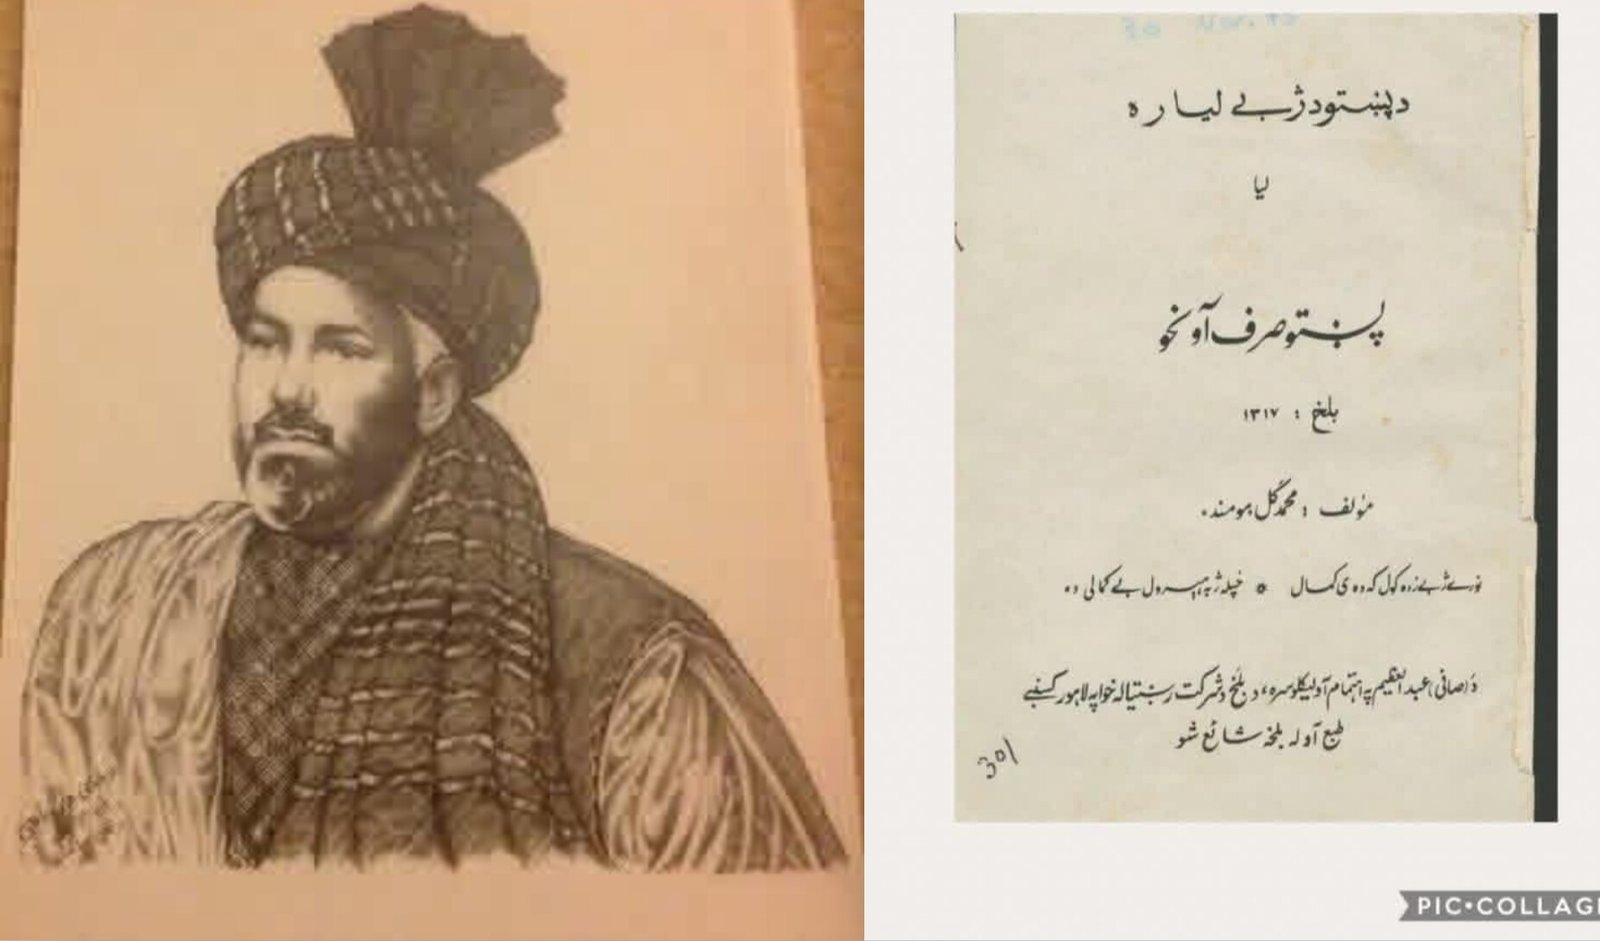 30 Nov. 
د پښتو د ژبے لیارہ
لیا
پښتو صرف آو نحو
بلخ : ۱۳۱۷
مؤلف : محمد گل مهومند.
نورے ژبے زده کول که ده ی کمال * خپله ژبه هېرول بے کمالی ده
د (صافی) عبدالعظیم په اهتمام آو لیکلو سره، د بلخ د شرکت رښتیا له خوا په لاهور کښے
طبع آو له بلخه شائع شو
301
PIC•COLLAG